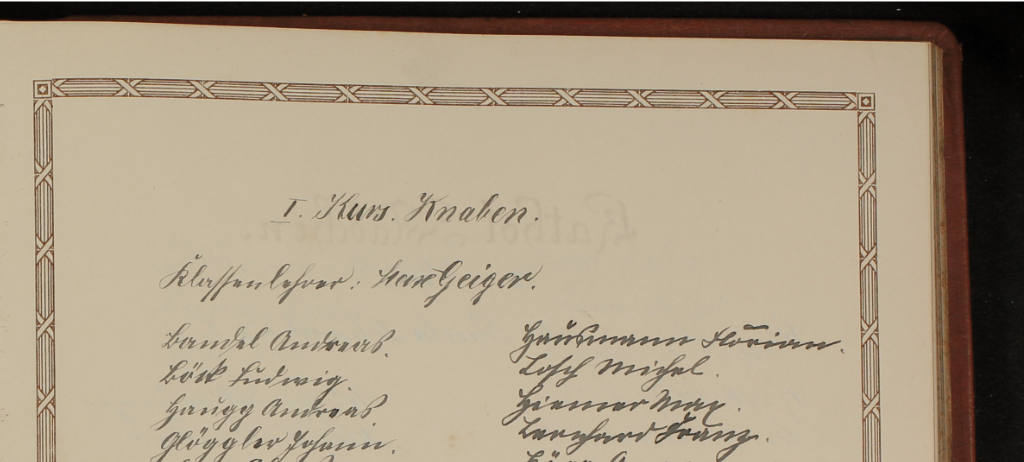 I. Kurs. Knaben.
Klassenlehrer: Max Geiger.
Bandel Andreas.
Böck Ludwig.
Haugg Andreas
Glöggler Johann.
Hausmann Florian.
Losch Michel.
Hiemer Max.
Lernhard Franz.